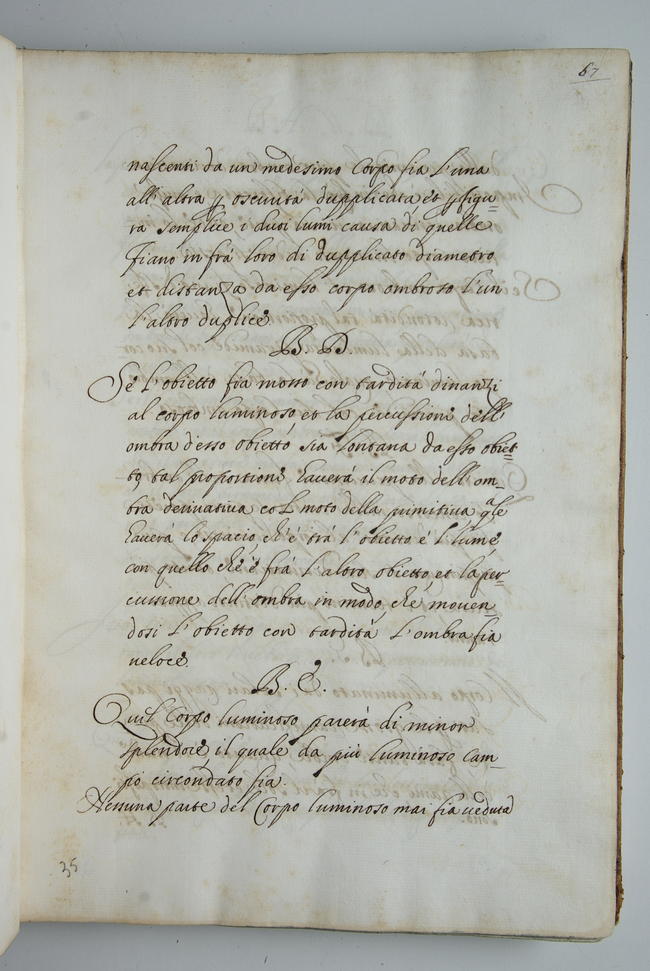 67
nascenti da un medesimo Corpo fia l'una
all'altra p oscurità dupplicata et p figu=
ra semplice i duoi lumi causa di quelle
fiano in frà loro di dupplicato diametro
et distanza da esso corpo ombroso l'un
l'altro duplice
B. D.
Se l'obietto fia mosso con tardità dinanzi
al corpo luminoso et la percussione dell'
ombra d'esso obietto sia lontana da esso obiet=
to tal proportione haverà il moto dell'om=
bra derivativa col moto della primitiva qale
haverà lo spacio ch'è trà l'obietto è l'lume
con quello che è frà l'altro obietto et la per=
cussione dell'ombra in modo che moven
dosi l'obietto con tardità l'ombra fia
veloce
B. E.
Quil Corpo luminoso parerà di minor
splendore il quale da più luminoso cam=
po circondato fia
Nessuna parte del Corpo luminoso mai fia veduta
35